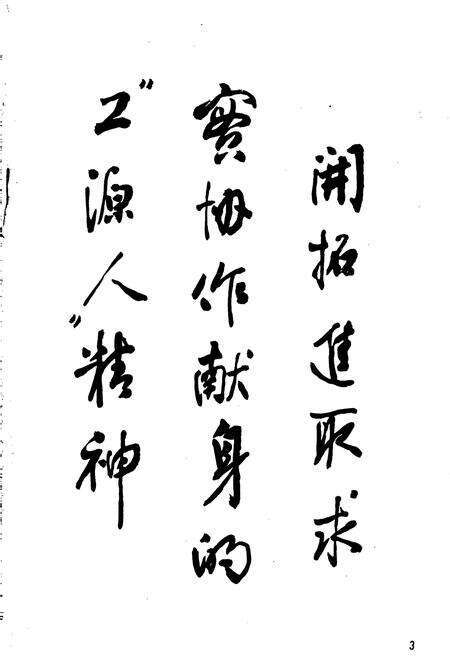 開拓進取求
實协作献身的
“工源人”精神
3